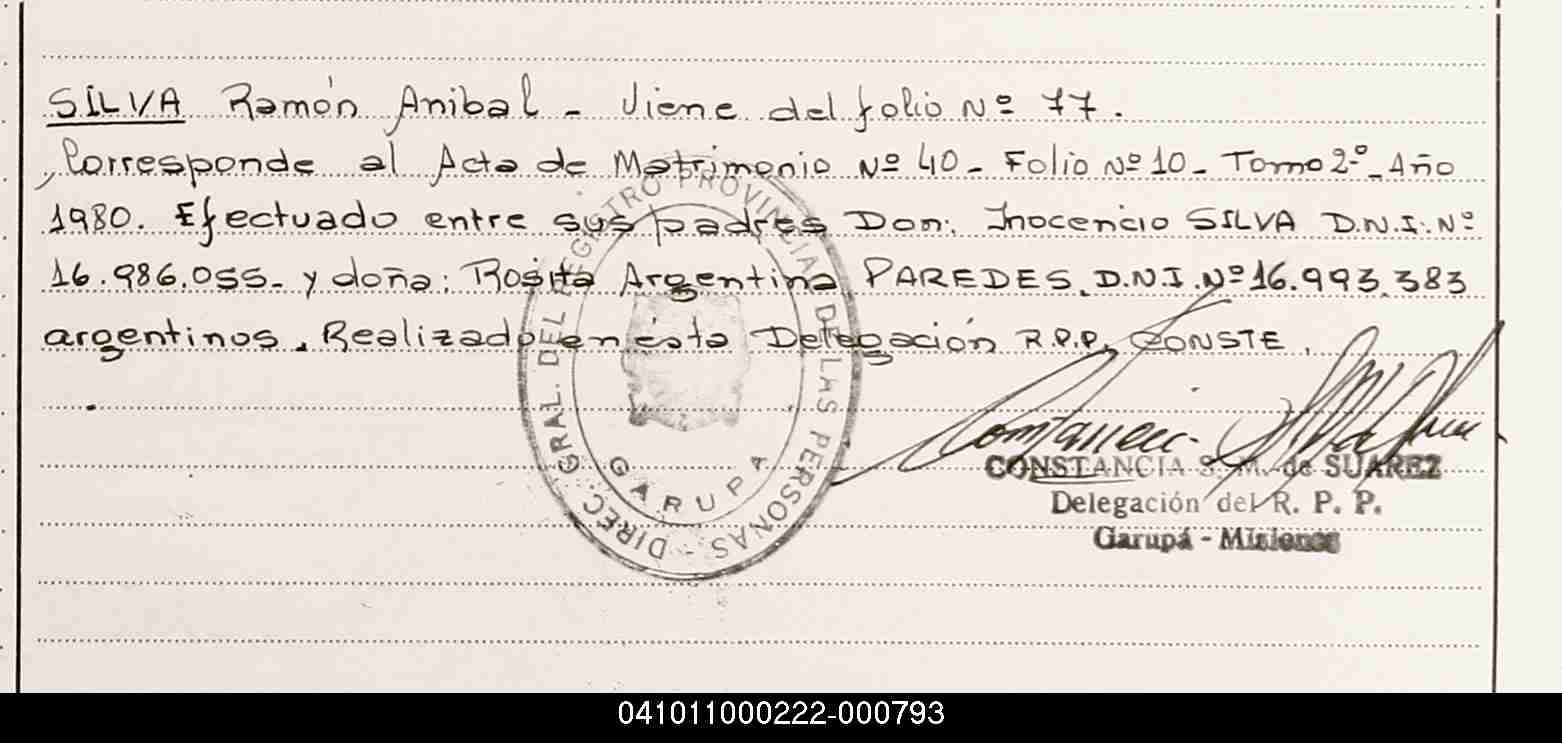 SILVA Ramón Anibal - Viene del folio Nº 77.
Corresponde al Acta de Matrimonio Nº 40 - Folio Nº 10 - Tomo 2º - Año
1980. Efectuado entre sus padres Don: Inocencio SILVA D.N.I. Nº
16.986.055 - y doña: Rosita Argentina PAREDES. D.N.I. Nº 16.993.383
argentinos. Realizado en ésta Delegación R.P.P. CONSTE.
DIREC. GRAL. DEL REGISTRO PROVINCIAL DE LAS PERSONAS -
GARUPA
CONSTANCIA S. M. de SUAREZ
Delegación del R. P. P.
Garupá - Misiones
041011000222-000793